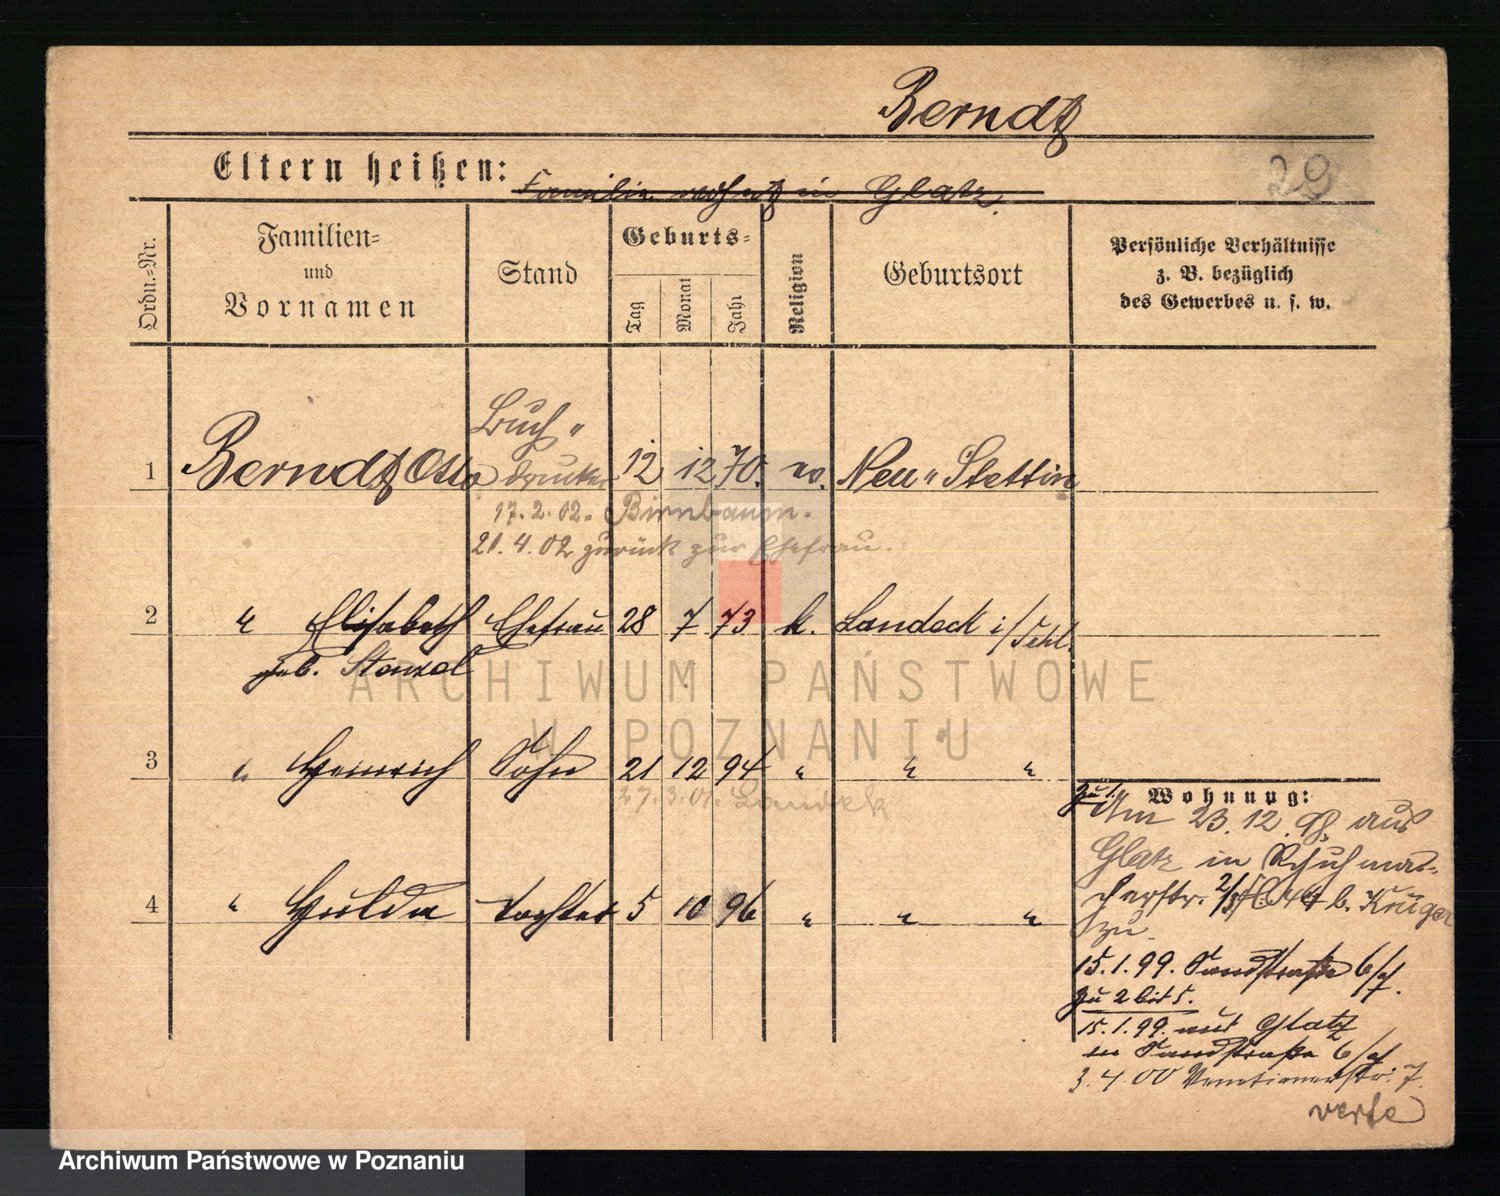 Berndt
Eltern heißen: Familie wohnt in Glatz.
29
Ordn.-Nr.
Familien-
und
Vornamen
Stand
Geburts-
Tag
Monat
Jahr
Religion
Geburtsort
Persönliche Verhältnisse
z. B. bezüglich
des Gewerbes u. s. w.
Buch"
1 Berndt Otto drucker 12 12 70. ev. Neu"Stettin
17.2.02. Birnbaum.
21.4.02 zurück zur Ehefrau.
2 " Elisabeth Ehefrau 28 7 73 k. Landeck i/Schl.
geb. Stenzel
3 " Heinrich Sohn 21 12 94 " " "
27.3.01. Landek
4 " Hulda Tochter 5 10 96 " " "
zu 1. Wohnung:
Am 23.12.98. aus
Glatz in Schuhma-
cherstr. b. Krüger
zu
15.1.99. Sandstraße 6/
zu 2 bis 5.
15.1.99. aus Glatz
in Sandstraße 6/
3.4.00 Venetianerstr. 7.
verte
ARCHIWUM PAŃSTWOWE
W POZNANIU
Archiwum Państwowe w Poznaniu